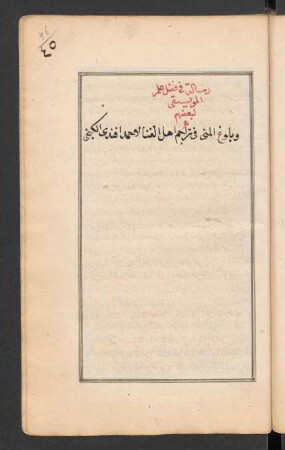 46
٤٥
رسالة في فضل علم
الموسيقى
لبعضهم
وبلوغ المنى في تراجم اهل الغنا لاحمد افندى الكنجى